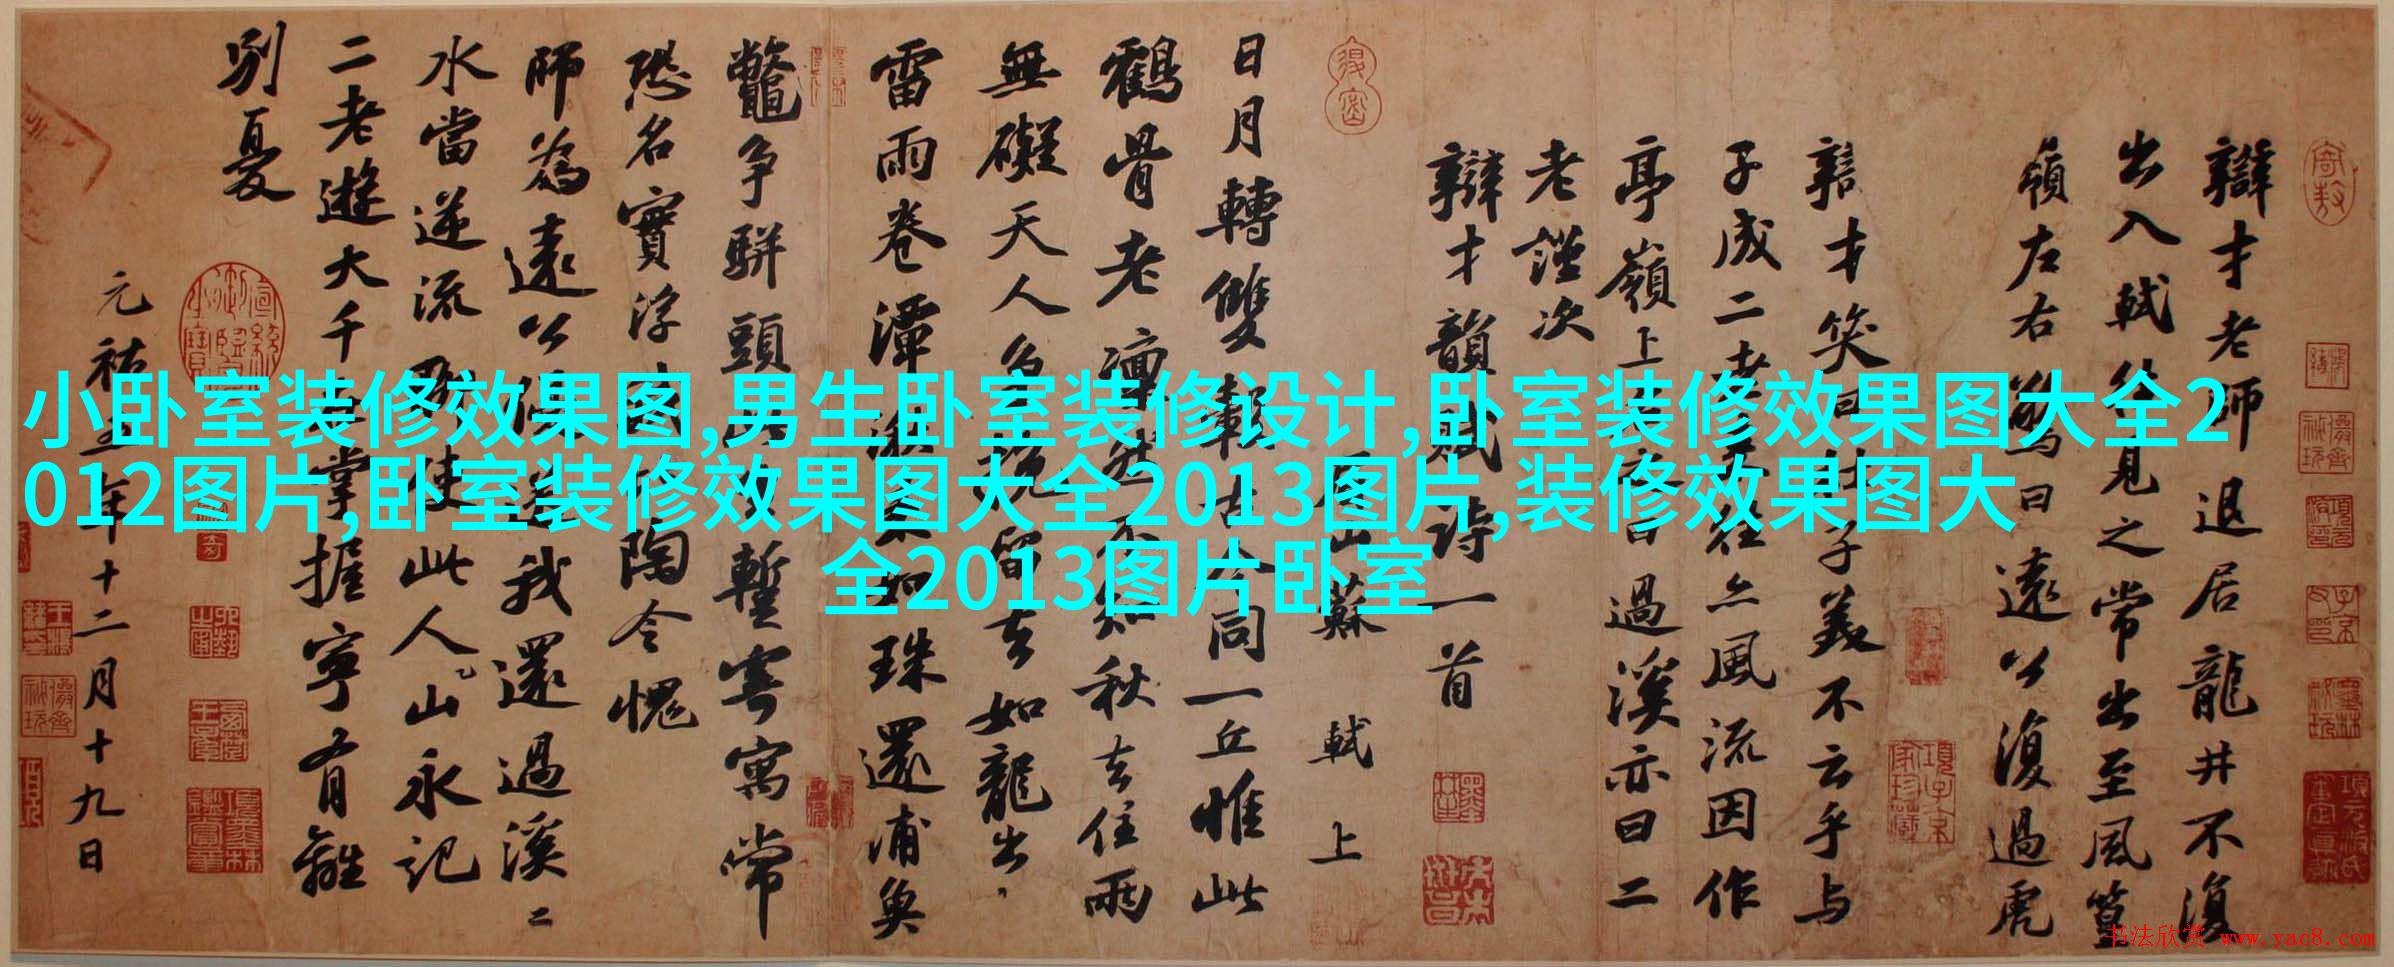 辯才老師退居龍井不復
出入軾往見之常出至風篁
嶺左右驚曰遠公復過虎
辯才笑曰杜子美不云乎与
子成二老來往亦風流因作
亭嶺上名曰過溪亦曰二
老謹次
辯才韻賦詩一首
眉山蘇軾上
日月轉雙轂古今同一丘惟此
鶴骨老凜然不知秋去住兩
無礙天人爭挽留去如龍出
雷雨卷潭湫來如珠還浦魚
鱉爭駢頭此生暫寄寓常
恐名實浮我比陶令愧
師為遠公優送我還過溪二
水當逆流聊使此人山永記
二老遊大千在掌握寧有離
別憂
元祐五年十二月十九日
小卧室装修效果图,男生卧室装修设计,卧室装修效果图大全2
012图片,卧室装修效果图大全2013图片,装修效果图大
全2013图片卧室
书法欣赏 www.yac8.com